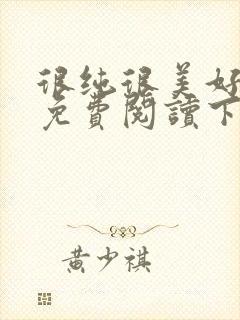 很纯很美好
免費閱讀下
黄少祺